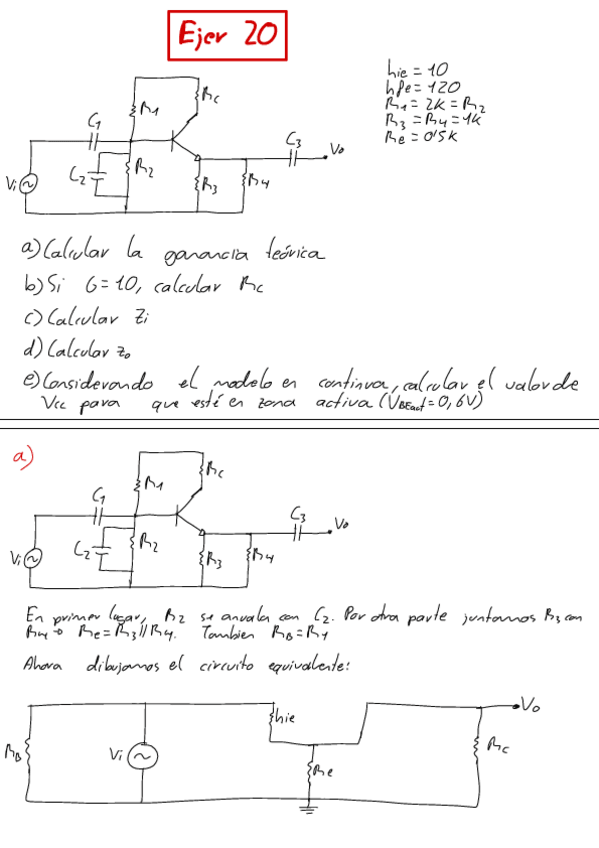 Ejer 20
hie = 10
hfe = 120
R1 = 2K = R2
R3 = R4 = 1K
Re = 0'5K
R1
Rc
C1
C3
Vo
C2
R2
Vi
R3
R4
a) Calcular la ganancia teórica
b) Si G = 10, calcular Rc
c) Calcular Zi
d) Calcular Zo
e) Considerando el modelo en continua, calcular el valor de
Vcc para que esté en zona activa (VBEact = 0,6V)
a)
R1
Rc
C1
C3
Vo
C2
R2
Vi
R3
R4
En primer lugar, R2 se anula con C2. Por otra parte juntamos R3 con
R4 → Re = R3 // R4. Tambien RB = R1
Ahora dibujamos el circuito equivalente:
Vo
hie
RB
Vi
Re
Rc